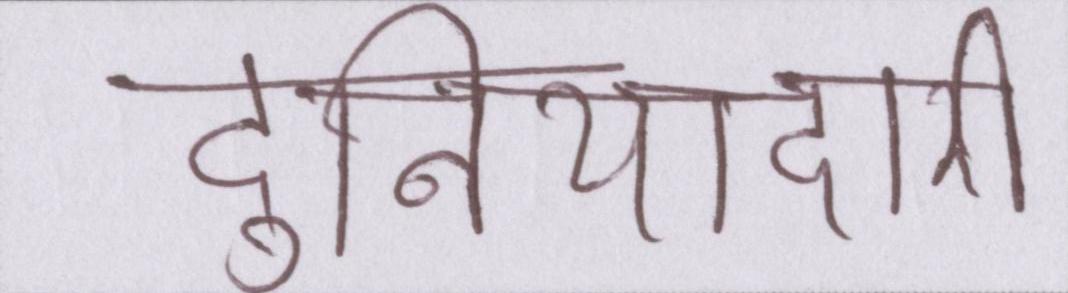 दुनियादारी